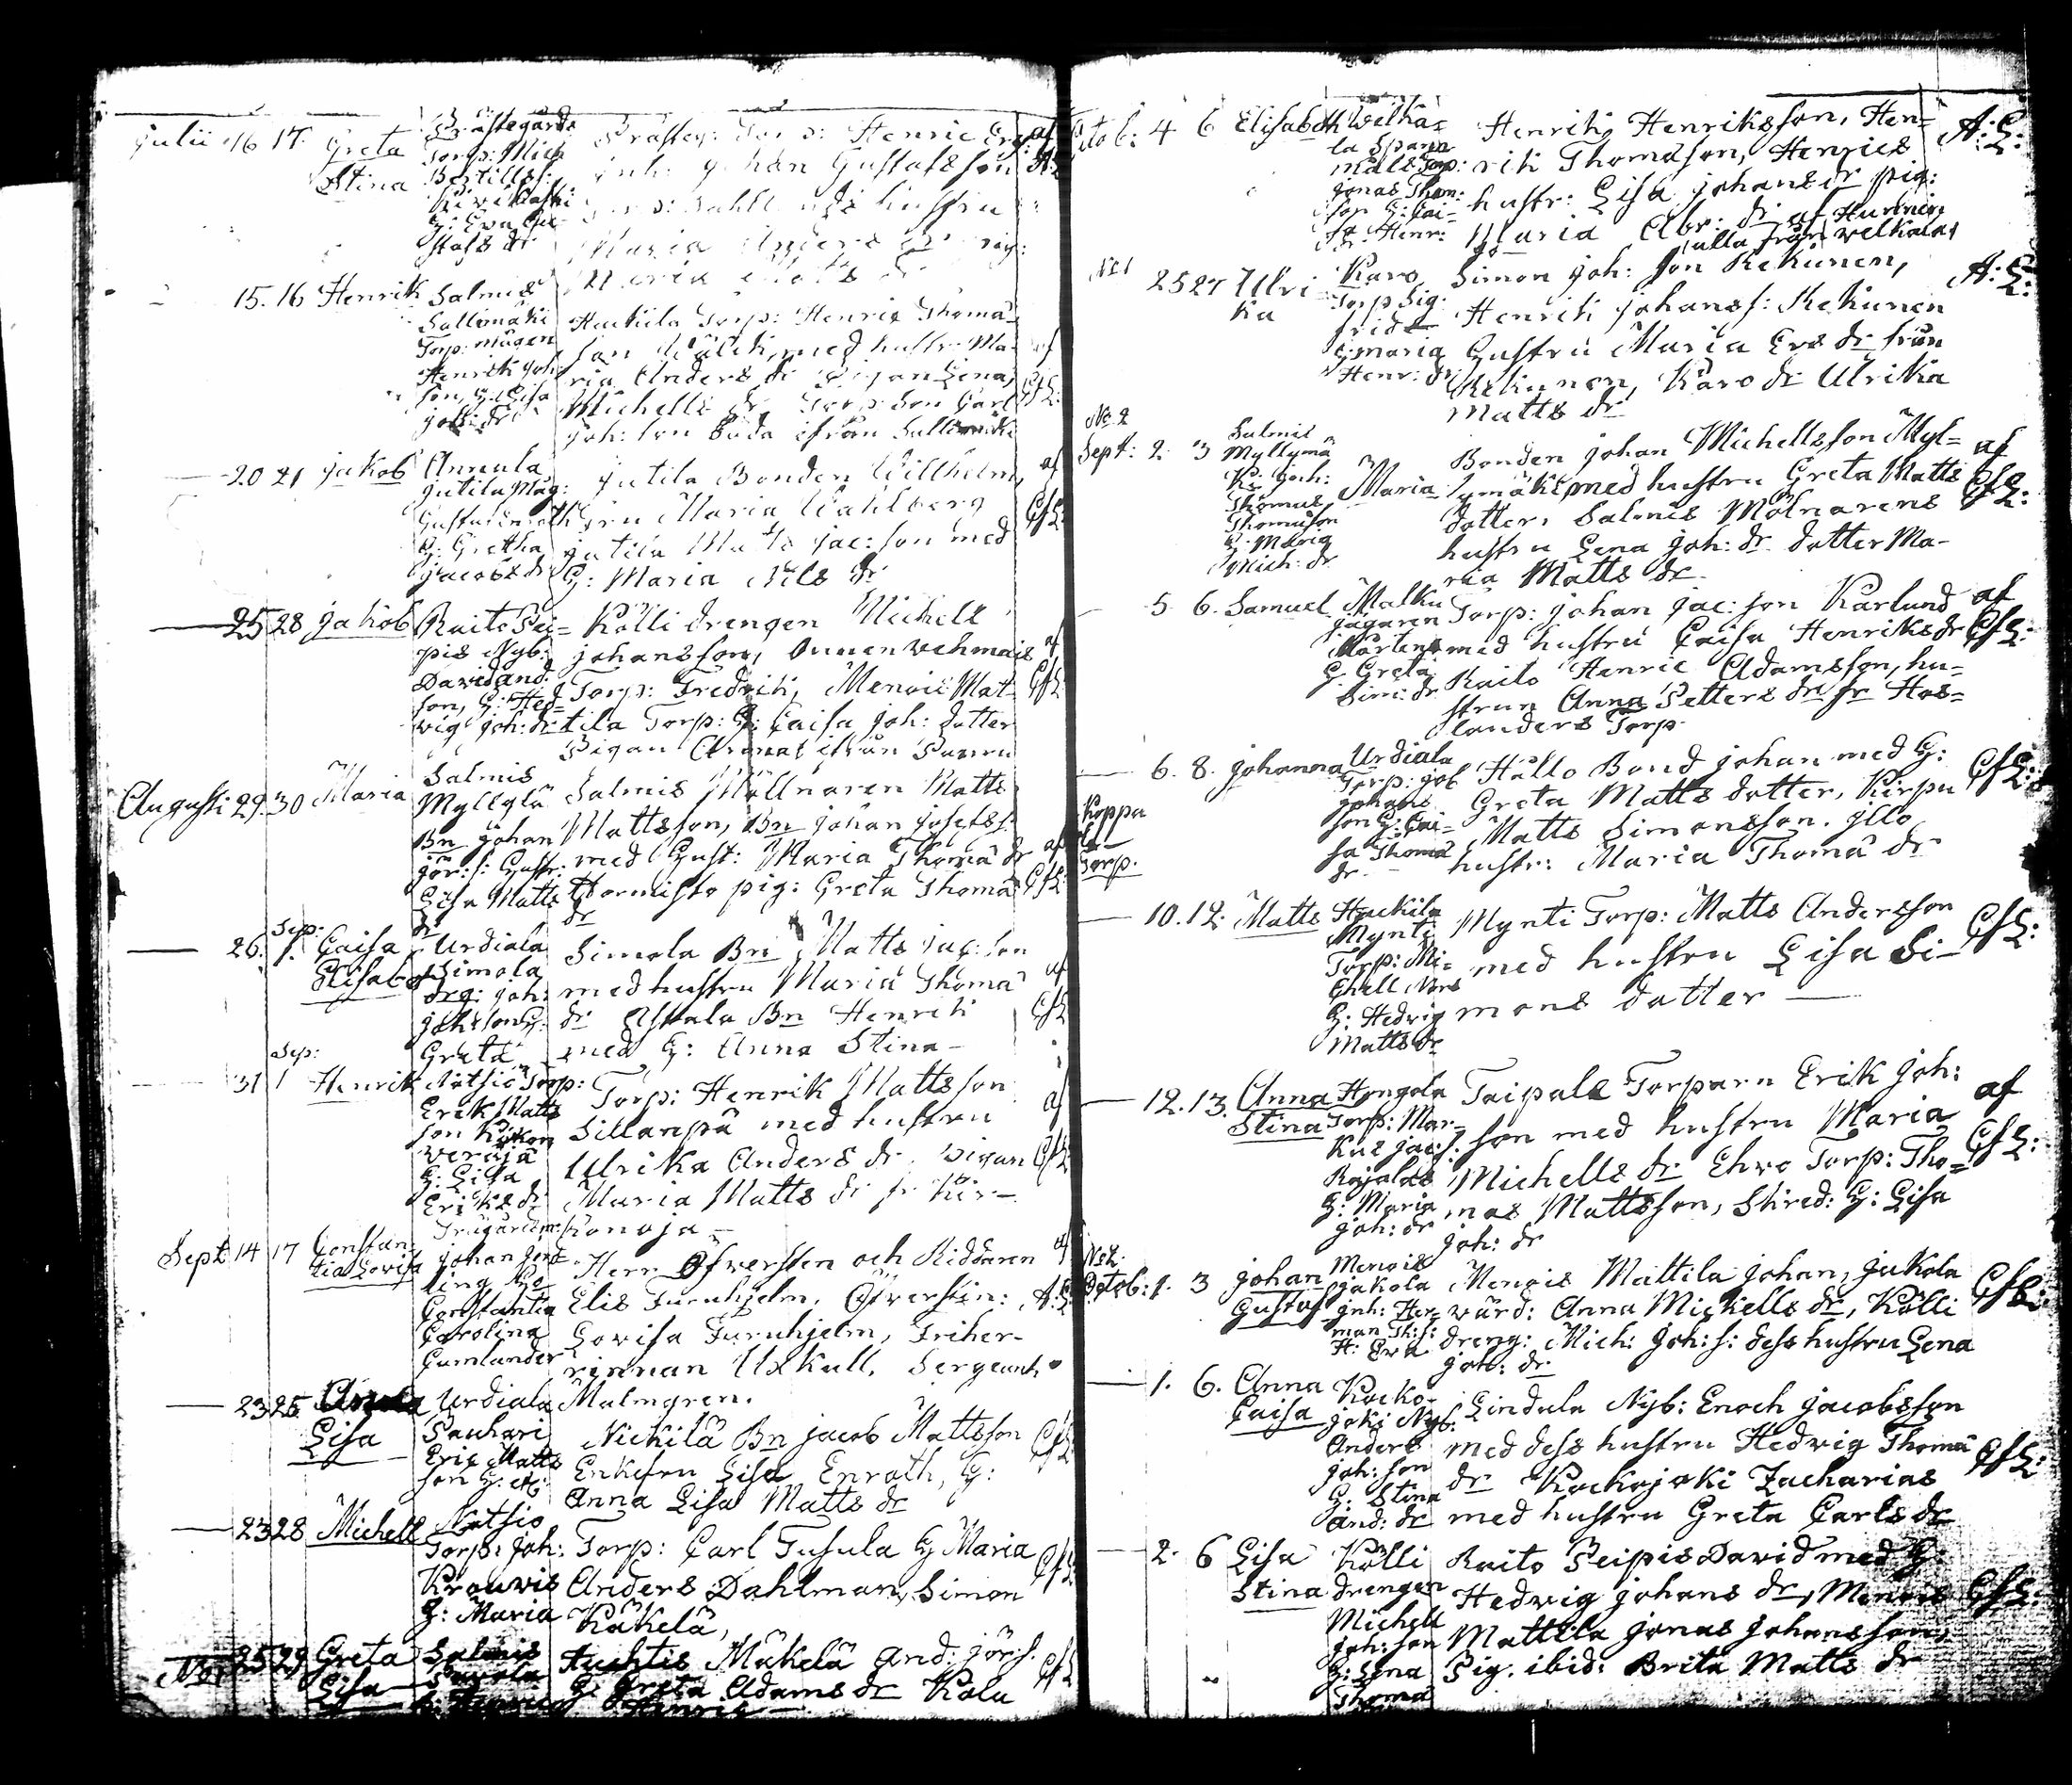 Julii 16 17. Greta Stina
Torp: Mich
Bertills:
G: Eva Gu-
stafs dr
Johan Gustafsson
hustru
Maria Anders dr pig:
Maria Matts dr
15. 16 Henrik Salmis
Sallimäki
Torp: mågen
Henrik Joh:
son, G: Lisa
Joh: dr
Huckila Torp: Henric Thoma
son med hustr. Ma-
ria Anders dr Pigan Lena
Michells dr Torp: son Carl
Joh: son ifrån Sallimäki
af
CfL:
20 21 Jakob Annula
Jutila Måg:
G: Gretha
Jacobs dr
Jutila Bonden Willhelm
fru Maria Wahlberg
Jutila Matts Jac: son med
G: Maria Nils dr
af
CfL:
25 28 Jakob Raito Pei=
pis Nyb:
David And:
son, G: Hed=
vig Joh: dr
Kölli drengen Michell
Johansson, Onnenvehmais
Torp: Fredrik, Menois Mat-
tila Torp: G: Caisa Joh: dotter
Pigan ifrån
af
CfL:
Augusti 29. 30 Maria Salmis
Myllylä
Bn Johan
Jör: s: Hustr:
Lisa Matts
dr
Salmis Möllnaren Matts
Mattsson, Bn Johan Josefs s:
med Hust: Maria Thoma dr
Tormisto pig: Greta Thoma
dr
af
CfL:
Sep:
26. 1. Caisa Elisabet
Urdiala
Simola
drg: Joh:
Joh: son G:
Greta
Simola Bn Matts Jac: son
med hustru Maria Thoma
dr Askala Bn Henrik
med G: Anna Stina-
af
CfL
Sep:
31 1 Henrik Notsiö Torp:
Erik Matts
son
G: Lisa
Eriks dr
Torp: Henrik Mattsson
Sillanpä med hustru
Ulrika Anders dr. Pigan
Maria Matts dr fr Kir-
konoja-
af
CfL
Sept: 14 17 Constan-
tia Lovisa
Johan
Constantia
Carolina
Gumlander
Herr Öfversten och Riddaren
Elis Furuhjelm, Öfverstin:
Lovisa Furuhjelm, Friher-
rinnan Uxkull, Sergeant
Malmgren.
af
A:L:
23 25. Lisa
Urdiala
Pauhari
Eric Matts
son G:
Nickilä Bn Jacob Mattsson
Enkefru Lisa Enroth, G:
Anna Lisa Matts dr
CfL
23 28 Michell Notsio
Torp: Joh:
Krouvis
G: Maria
Torp: Carl Tusula G Maria
Anders Dahlman, Simon
Käkelä,
CfL
25 29 Greta Lisa Salmis
Huhtis Mäkelä And: Jör: s.
G: Greta Adams dr Kola
CfL
Octob: 4 6 Elisabeth Weltha=
la Spann
måls Torp:
Jonas Thom:
son G: Cai-
sa Henr:
dr
Henrik Henriksson, Hen=
rik Thomasson, Henrics
hustr: Lisa Johans dr pig:
Maria Abr: dr af Hunnen
alla från Welthala
A:L:
No 1
25 27 Ulri
ka
Karo
Torp Sig:
frid
G Maria
Henr: dr
Simon Joh: son Kekunen,
Henrik Johans s: Kekunen
Hustru Maria Ers dr från
Kekunen, Karo dr Ulrika
Matts dr
A:L:
No 2
Sept: 2 3 Maria
Salmis
Myllymä
ki Joh:
Thomas
Thomason
G Maria
Mich: dr
Bonden Johan Michellsson Myl=
lymäki med hustru Greta Matts
dotter, Salmis Mölnarens
hustru Lena Joh: dr dotter Ma-
ria Matts dr
af
CfL:
5 6. Samuel Malku
jägaren
Mårtens
G Greta
Sim: dr
Torp: Johan Jac: son Karlund
med hustru Caisa Henriks dr
Raito Henric Adamsson, hu=
strun Anna Petters dr fr Has=
landers Torp
af
CfL:
6. 8. Johanna Urdiala
Torp: Joh
Johans
son G: Cai=
sa Thoma
dr
Koppa
la
Torp.
Hällo Bond Johan med G:
Greta Matts dotter, Kirpu
Matts Simonsson. Illo
hustr: Maria Thoma dr
CfL:
10. 12. Matts Huckila
Mynti
Torp: Mi=
chell
G: Hedvig
Matts dr
Mynti Torp: Matts Andersson
med hustru Lisa Si-
mons datter —
CfL:
12. 13. Anna Stina
Hongola
Torp: Mar=
kus Jac: s:
Rajalas
G: Maria
Joh: dr
Taipale Torparn Erik Joh:
son med hustru Maria
Michells dr Ehro Torp: Tho=
mas Mattsson, Skred: G: Lisa
Joh: dr
af
CfL:
No 2.
Octob: 1. 3 Johan Gustaf
Menois
Jakola
inh: Her
man Th: s:
H: Eva
Menois Mattila Johan, Jakola
värd: Anna Michells dr, Kölli
dreng: Mich: Joh: s: dess hustru Lena
Joh: dr
CfL:
1. 6. Anna Caisa
Kocko-
joki Nyb:
Anders
Joh: son
G: Stina
And: dr
Lindula Nyb: Enoch Jacobsson
med dess hustru Hedvig Thoma
dr Kockojoki Zacharias
med hustru Greta Carls dr
CfL:
2. 6 Lisa Stina
Kölli
drengen
Michell
Joh: son
G: Lena
Thoma
Raito Peipis David med G:
Hedvig Johans dr, Menois
Mattila Jonas Johansson,
Pig. ibid: Brita Matts dr
CfL: